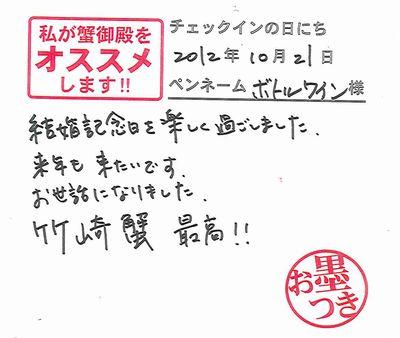 私が蟹御殿を
オススメ
します!!
チェックインの日にち
2012年10月21日
ペンネーム ボトルワイン様
結婚記念日を楽しく過ごしました.
来年も来たいです.
お世話になりました.
竹崎蟹 最高!!
お墨つき